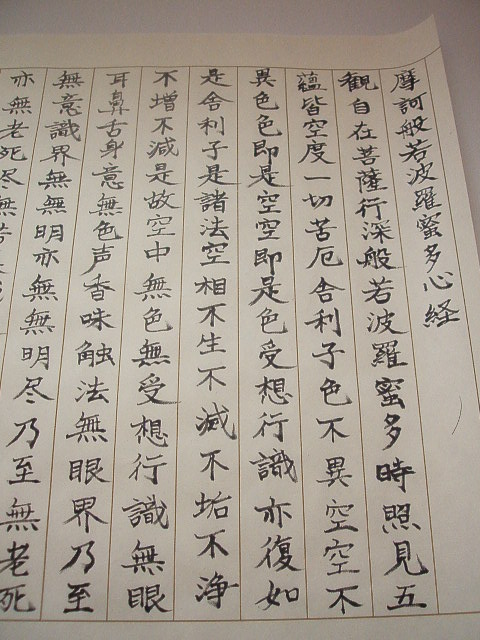 摩訶般若波羅蜜多心経
観自在菩薩行深般若波羅蜜多時照見五
蘊皆空度一切苦厄舎利子色不異空空不
異色色即是空空即是色受想行識亦復如
是舎利子是諸法空相不生不滅不垢不浄
不増不減是故空中無色無受想行識無眼
耳鼻舌身意無色声香味触法無眼界乃至
無意識界無無明亦無無明尽乃至無老死
亦無老死尽無苦